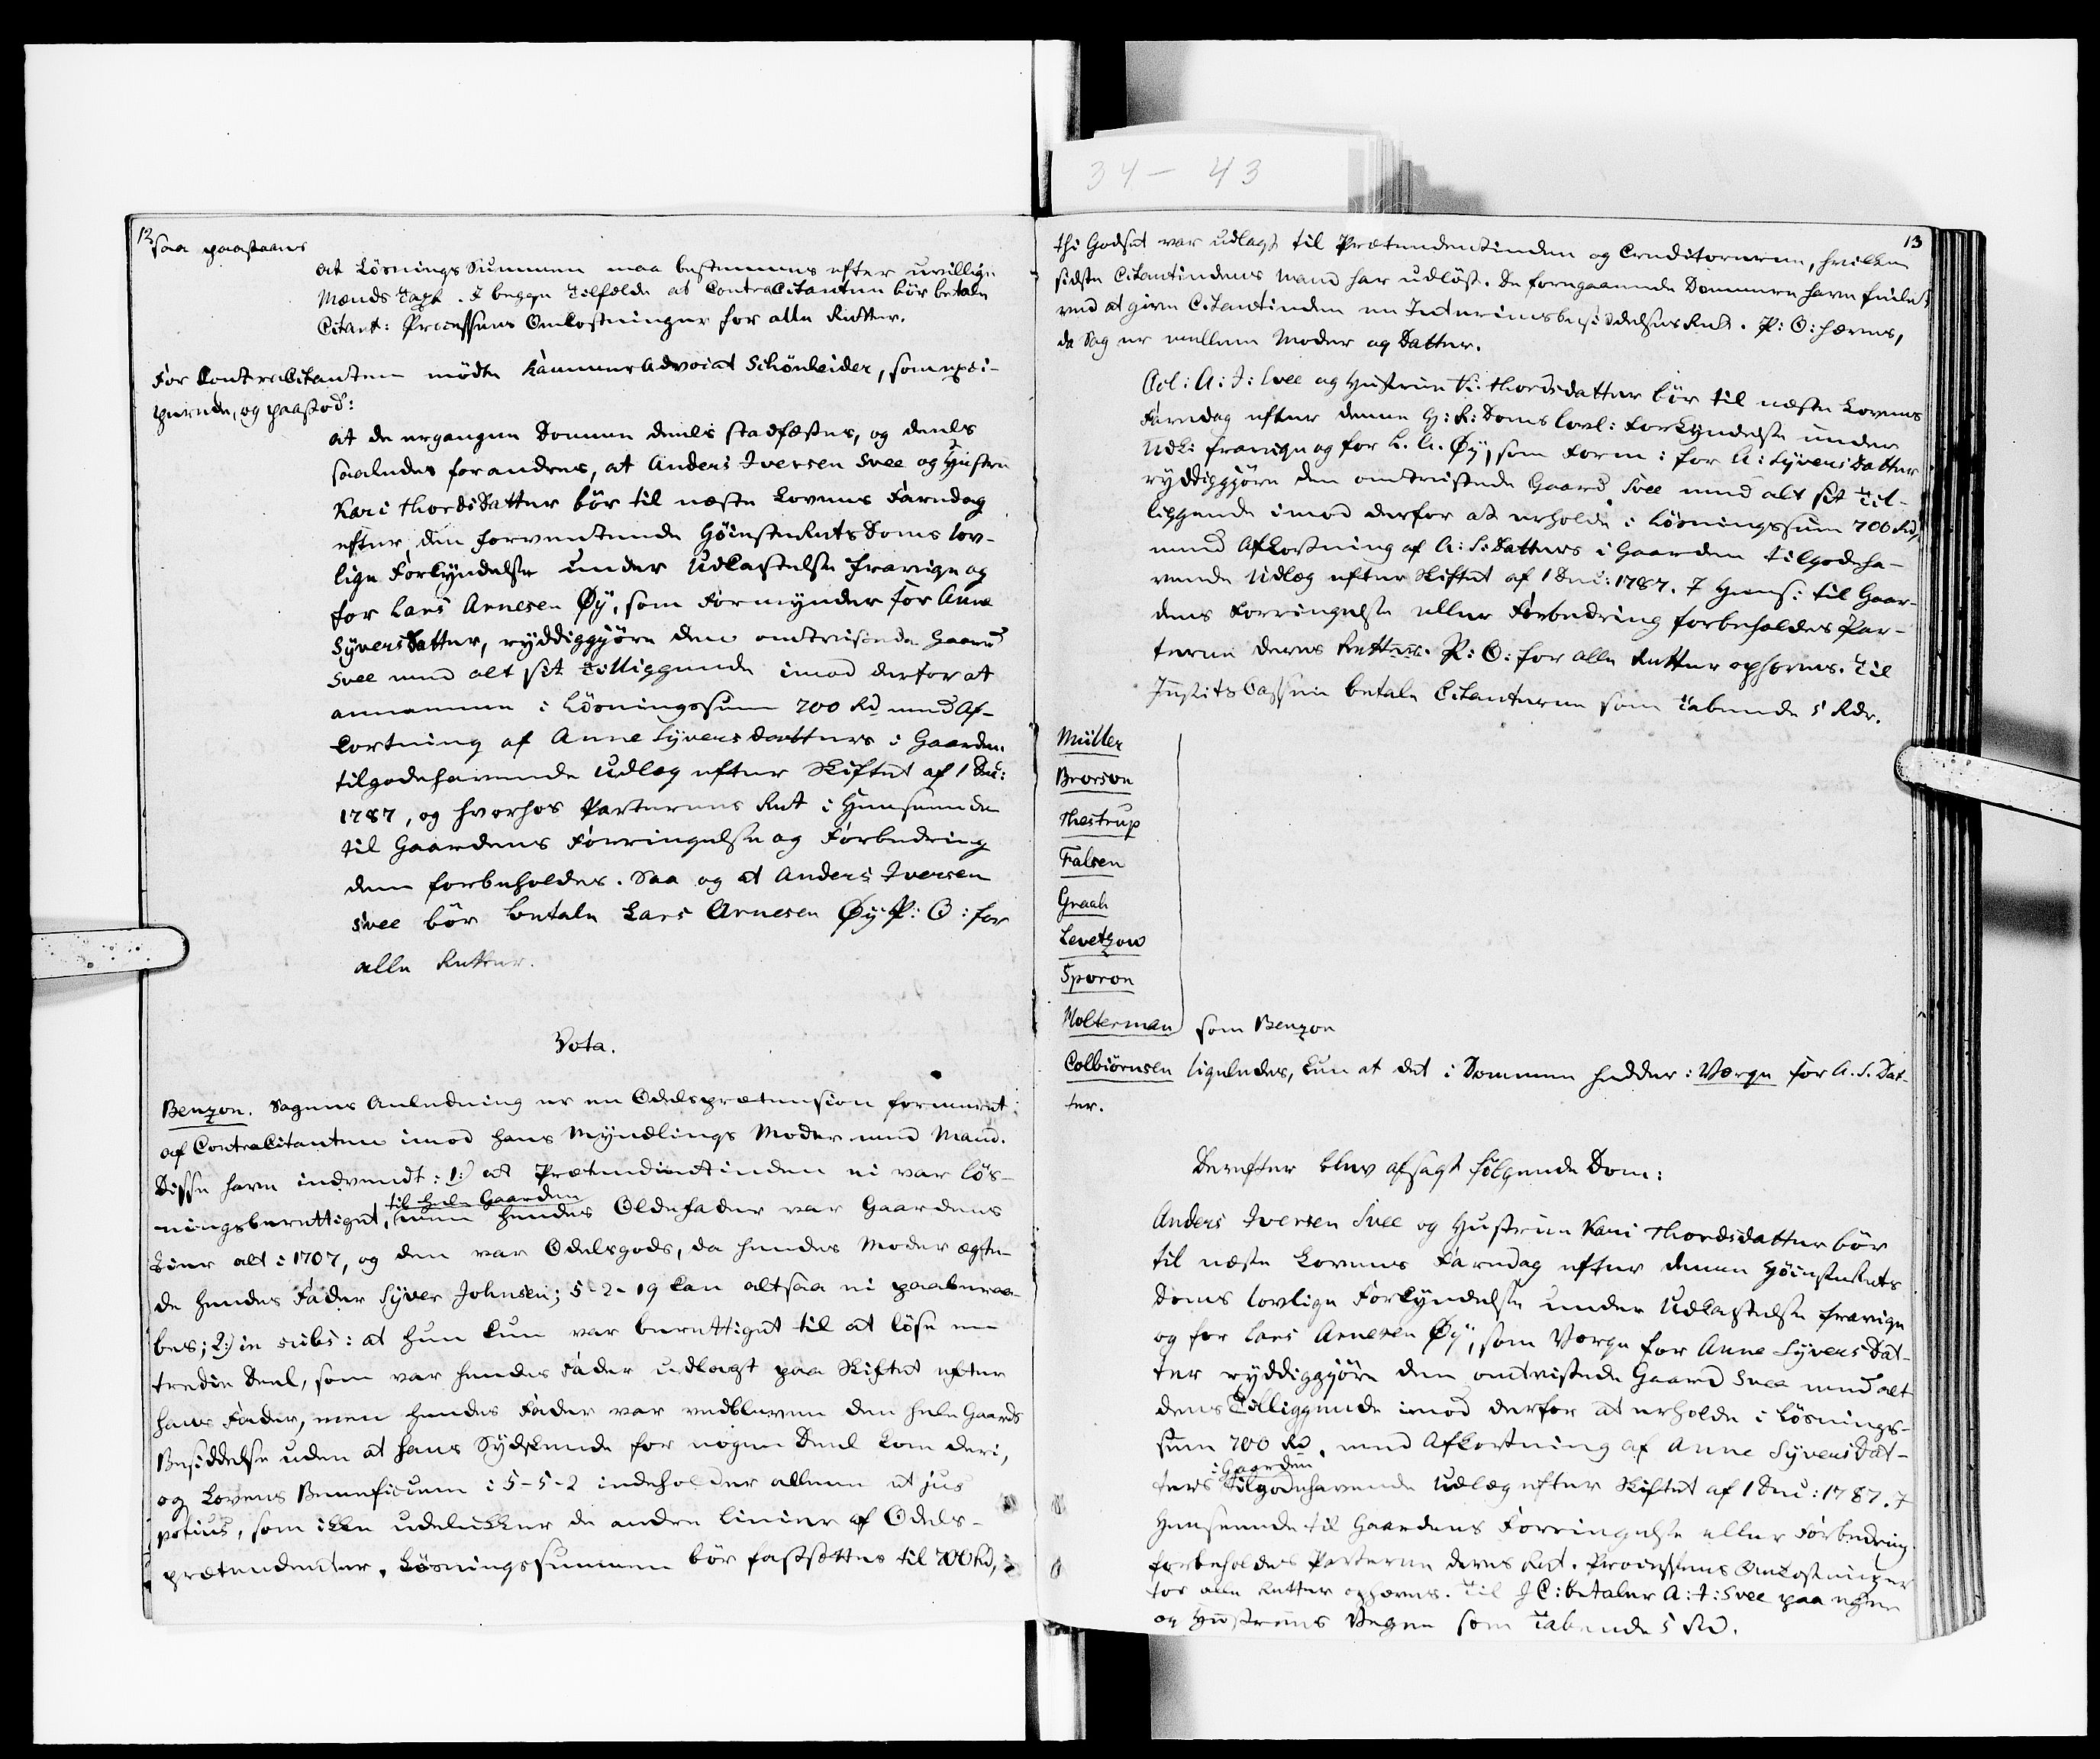 34 – 43
12
saa paastaaes
at Lösnings Summen maa bestemmes efter uvillige
Mænds Taxt. I begge Tilfælde at ContraCitanten bör betale
Citant: Processens Omkostninger for alle Retter.
For ContraCitanten mödte KammerAdvocat Schönheider, som exci-
perede, og paastod:
at de ergangne Domme deels stadfæstes, og deels
saaledes forandres, at Anders Iversen Svee og Hustru
Kari Thordsdatter bör til næste Lovens Faredag
efter den forventende HöiesteRetsDoms lov-
lige Forkyndelse under Udkastelse fravige og
for Lars Arnesen Øÿ, som Formynder for Anne
Syversdatter, ryddiggjöre den omtvistede Gaard
Svee med alt sit Tilliggende imod derfor at
annamme i Lösningssum 700 Rd med Af-
kortning af Anne Syversdatters i Gaarden
tilgodehavende Udlæg efter Skiftet af 1 Dec:
1787, og hvorhos Parternes Ret i Henseende
til Gaardens Forringelse og Forbedring
dem forbeholdes. Saa og at Anders Iversen
Svee bör betale Lars Arnesen Øÿ P: O: for
alle Retter.
Vota.
Benzon. Sagens Anledning er en Odelsprætension formeret
af ContraCitanten imod hans Myndlings Moder med Mand.
Disse have indvendt: 1:) at Prætendentinden ei var lös-
ningsberettiget til hele Gaarden, men hendes Oldefader var Gaardens
Eier alt i 1707, og den var Odelsgods, da hendes Moder ægte-
de hendes Fader Syver Johnsen; 5-2-19 kan altsaa ei paaberaa-
bes; 2:) in subs: at hun kun var berettiget til at löse en
tredie Deel, som var hendes Fader udlagt paa Skiftet efter
hans Fader, men hendes Fader var vedbleven den hele Gaards
Besiddelse uden at hans Sydskende for nogen Deel kom deri,
og Lovens Beneficium i 5-5-2 indeholder allene et jus
potius, som ikke udelukker de andre Linier af Odels-
prætendenter. Lösningssummen bör fastsættes til 700 Rd,
13
thi Godset var udlagt til Prætendentinden og Creditorerne, hvilken
sidste Citantindens Mand har udlöst. De foregaaende Dommere have feilet
ved at give Citantinden en InterimsbesiddelsesRet. P: O: hæves,
da Sag er mellem Moder og Datter.
Ccl: A: I: Svee og Hustrue K: Thordsdatter bör til næste Lovens
Faredag efter denne H: R: Doms lovl: Forkyndelse under
Udk: fravige og for L. A. Øÿ, som Form: for A: Syversdatter
ryddiggjöre den omtvistede Gaard Svee med alt sit Til-
liggende imod derfor at erholde i Lösningssum 700 Rd,
med Afkortning af A: S: Datters i Gaarden tilgodeha-
vende Udlæg efter Skiftet af 1 Dec: 1787. I Hens: til Gaar-
dens Forringelse eller Forbedring forbeholdes Par-
terne deres Ret. P: O: for alle Retter ophæves. Til
JustitsCassen betale Citanterne som Tabende 5 Rdr.
Müller
Brorson
Thestrup
Falsen
Graah
Levetzow
Sporon
Wolterman som Benzon
Colbiörnsen ligeledes, kun at det i Dommen hedder: Værge for A. S. Dat-
ter.
Derefter blev afsagt fölgende Dom:
Anders Iversen Svee og Hustrue Kari Thordsdatter bör
til næste Lovens Faredag efter denne HöiesteRets
Doms lovlige Forkyndelse under Udkastelse fravige
og for Lars Arnesen Øÿ, som Værge for Anne SyversDat-
ter ryddiggjöre den omtvistede Gaard Svee med alt
dens Tilliggende imod derfor at erholde i Lösnings-
sum 700 Rd, med Afkortning af Anne SyversDat-
ters i Gaarden tilgodehavende Udlæg efter Skiftet af 1 Dec: 1787. I
Henseende til Gaardens Forringelse eller Forbedring
forbeholdes Parterne deres Ret. Processens Omkostninger
for alle Retter ophæves. Til J C: betaler A: I: Svee paa egne
og Hustrues Vegne som Tabende 5 Rd.